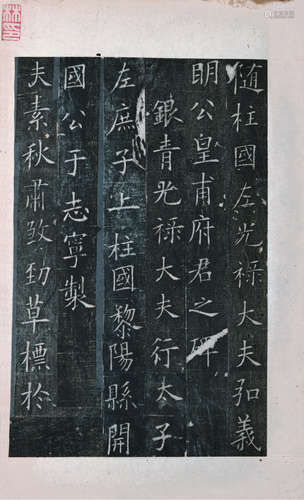 随柱國左光祿大夫弘義
明公皇甫府君之碑
銀青光祿大夫行太子
左庶子上柱國黎陽縣開
國公于志寧製
夫素秋肅致勁草標於